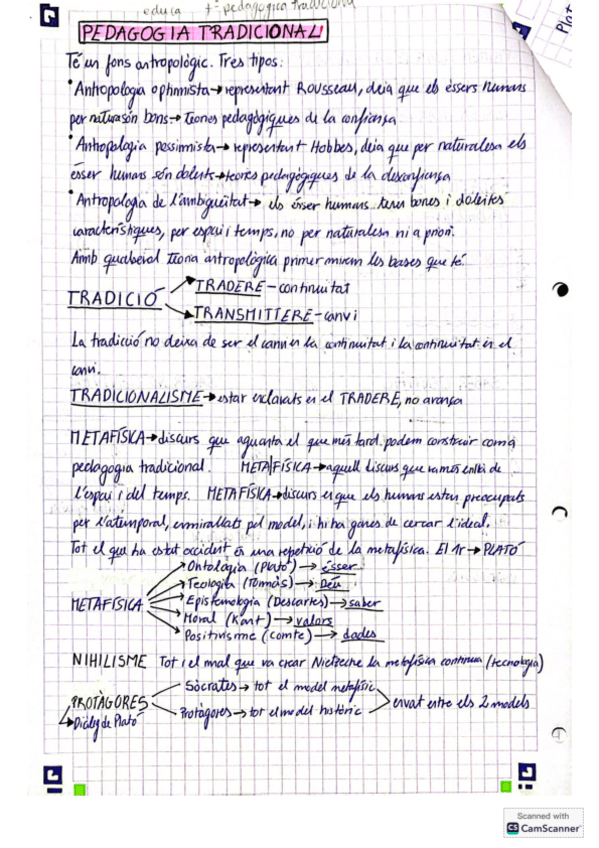 educa + pedagogica tradiciona
Plat
PEDAGOGIA TRADICIONAL
Té un fons antropològic. Tres tipus:
• Antropologia optimmista → representant Rousseau, deia que els èssers humans
per natura són bons → Teories pedagògiques de la confiança
• Antropologia pessimmista → representant Hobbes, deia que per naturalesa els
ésser humans són dolents → teories pedagògiques de la desconfiança
• Antropologia de l'ambigüitat → els ésser humans bones i dolentes
característiques, per espai i temps, no per naturalesa ni a priori.
Amb qualsevol teoria antropològica primer mirem les bases que té.
TRADICIÓ
TRADERE - continuitat
TRANSMITTERE - canvi
La tradició no deixa de ser el canvi en la continuitat i la continuitat en el
canvi.
TRADICIONALISME → estar esclavats en el TRADERE, no avança
METAFÍSICA → discurs que aguanta el que més tard podem construir com a
pedagogia tradicional. META|FÍSICA → aquell discurs que va més enllà de
l'espai i del temps. METAFÍSICA → discurs en que els humans estan preocupats
per l'atemporal, enmirallats pel model, i hi ha ganes de cercar l'ideal.
Tot el que ha estat occident és una repetició de la metafísica. El 1r → PLATÓ
METAFÍSICA
Ontologia (Plató) → ésser
Teologia (Tomàs) → Déu
Epistemologia (Descartes) → saber
Moral (Kant) → valors
Positivisme (Comte) → dades
NIHILISME Tot i el mal que va crear Nietzsche la metafísica continua (tecnologia)
PROTÀGORES
→ Diàleg de Plató
Sòcrates → tot el model metafísic
Protàgores → tot el model històric
envat entre els 2 models
Scanned with
CS CamScanner